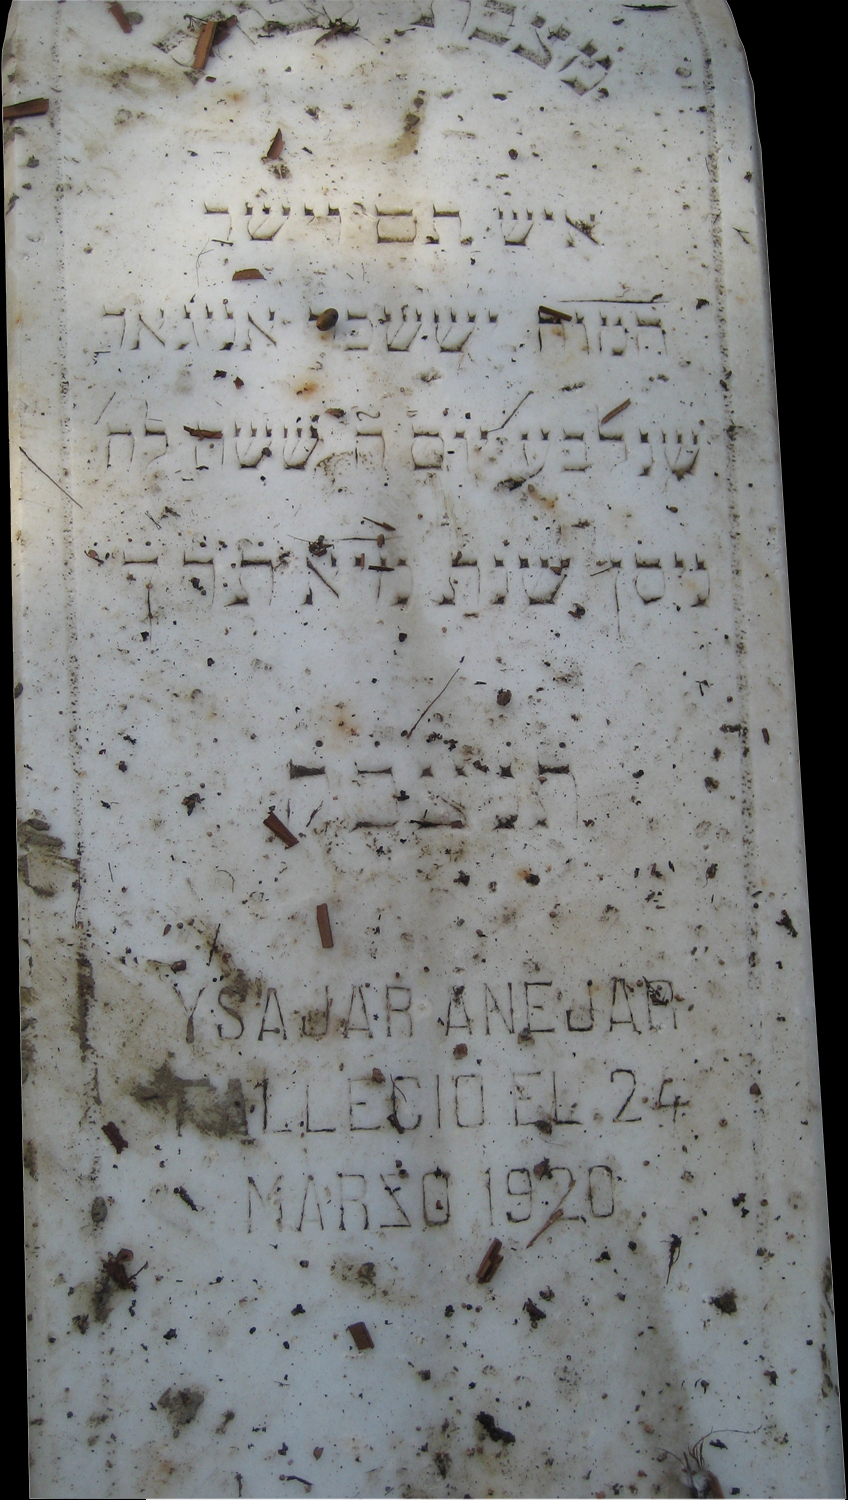 מצבת
איש תם וישר
המוח יששכר אניגאר
שנלבע יום ה ששה לח
ניסן שנת
תנצבה
YSAJAR ANEJAR
FALLECIO EL 24
MARZO 1920